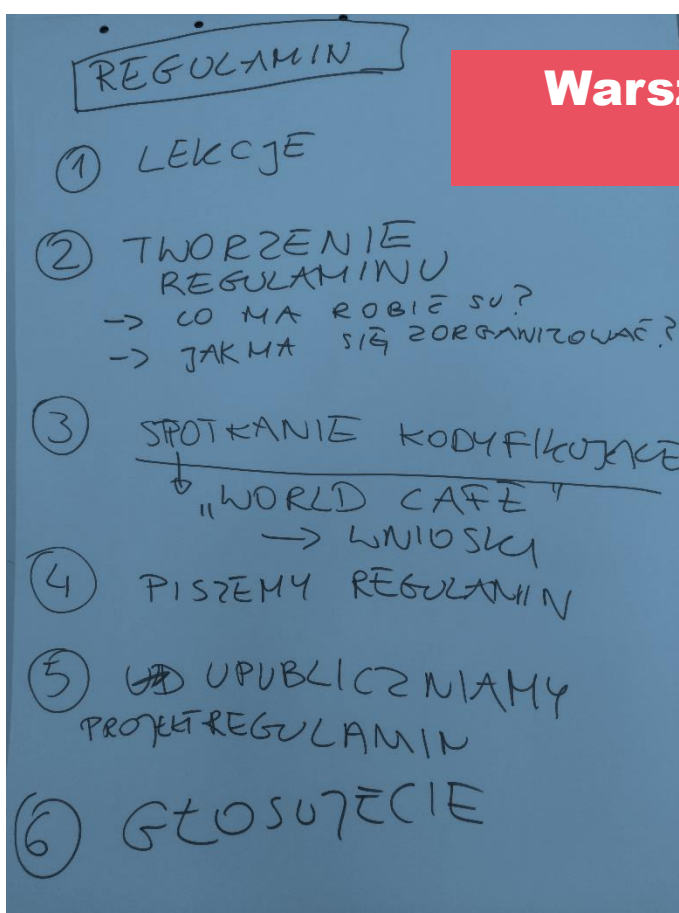 REGULAMIN
Warsz
① LEKCJE
② TWORZENIE
REGULAMINU
-> CO MA ROBIĆ SU?
-> JAK MA SIĘ ZORGANIZOWAĆ?
③ SPOTKANIE KODYFIKUJĄCE
"WORLD CAFE"
-> WNIOSKI
④ PISZEMY REGULAMIN
⑤ UPUBLICZNIAMY
PROJEKT REGULAMIN
⑥ GŁOSUJECIE